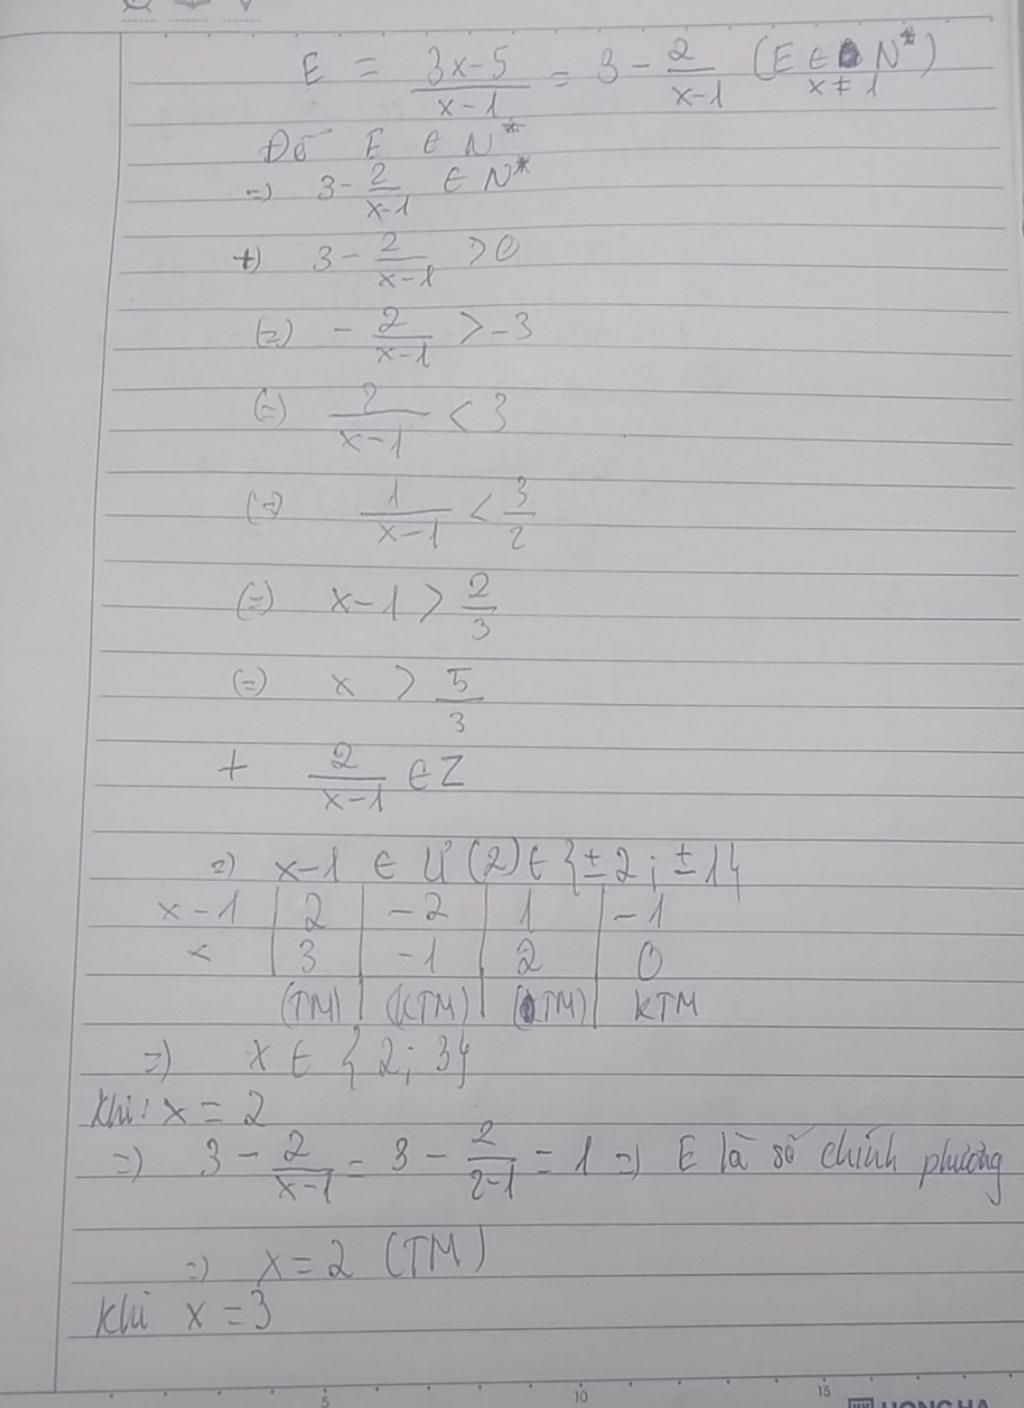 E = \frac{3x-5}{x-1} = 3 - \frac{2}{x-1} (E ∈ N* x ≠ 1)
Để E ∈ N*
=) 3 - \frac{2}{x-1} ∈ N*
+) 3 - \frac{2}{x-1} > 0
(=) - \frac{2}{x-1} > -3
(=) \frac{2}{x-1} < 3
(=) \frac{1}{x-1} < \frac{3}{2}
(=) x-1 > \frac{2}{3}
(=) x > \frac{5}{3}
+ \frac{2}{x-1} ∈ Z
=) x-1 ∈ Ư (2) ∈ {±2; ±1}
x-1 | 2 | -2 | 1 | -1
x | 3 | -1 | 2 | 0
(TM) | (KTM) | (TM) | KTM
=) x ∈ {2; 3}
Khi: x = 2
=) 3 - \frac{2}{x-1} = 3 - \frac{2}{2-1} = 1 =) E là số chính phương
=) x = 2 (TM)
khi x = 3
5 10 15
HONG HA